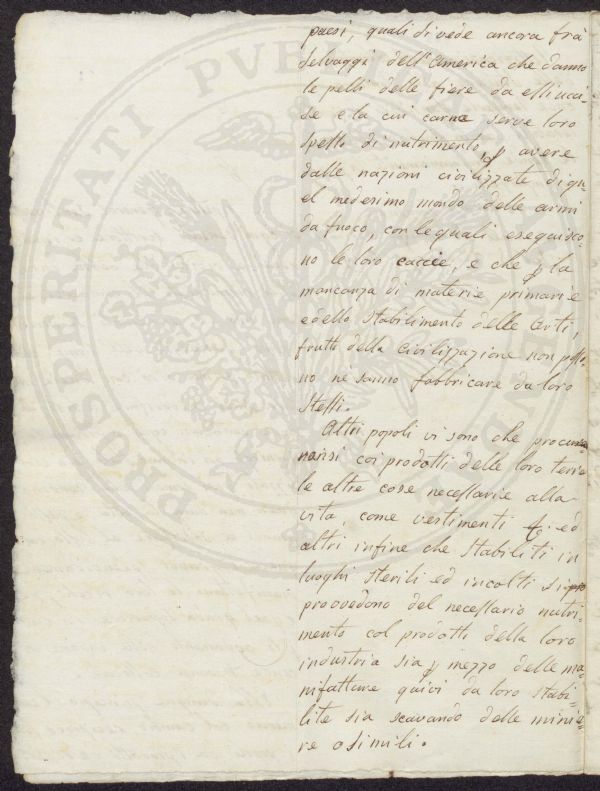 PROSPERITATI PUBLICAE AUGENDAE
paesi, quali si vede ancora frà
selvaggi dell'America che danno
le pelli delle fiere da essi ucci=
se e la cui carne serve loro
spesso di nutrimento, p avere
dalle nazioni civilizzate di qu=
el medesimo mondo delle armi
da fuoco, con le quali eseguisco=
no le loro caccie, e che p la
mancanza di materie primarie
e dello stabilimento delle Arti,
frutti della civilizzazione non posso=
no ne sanno fabbricare da loro
stessi.
Altri popoli vi sono che procu
ransi coi prodotti delle loro terre
le altre cose necessarie alla
vita, come vestimenti &. ed
altri infine che stabiliti in
luoghi sterili ed incolti si
provvedono del necessario nutri=
mento col prodotti della loro
industria sia p mezzo delle ma=
nifatture quivi da loro stabi=
lite sia scavando delle minie=
re o simili.